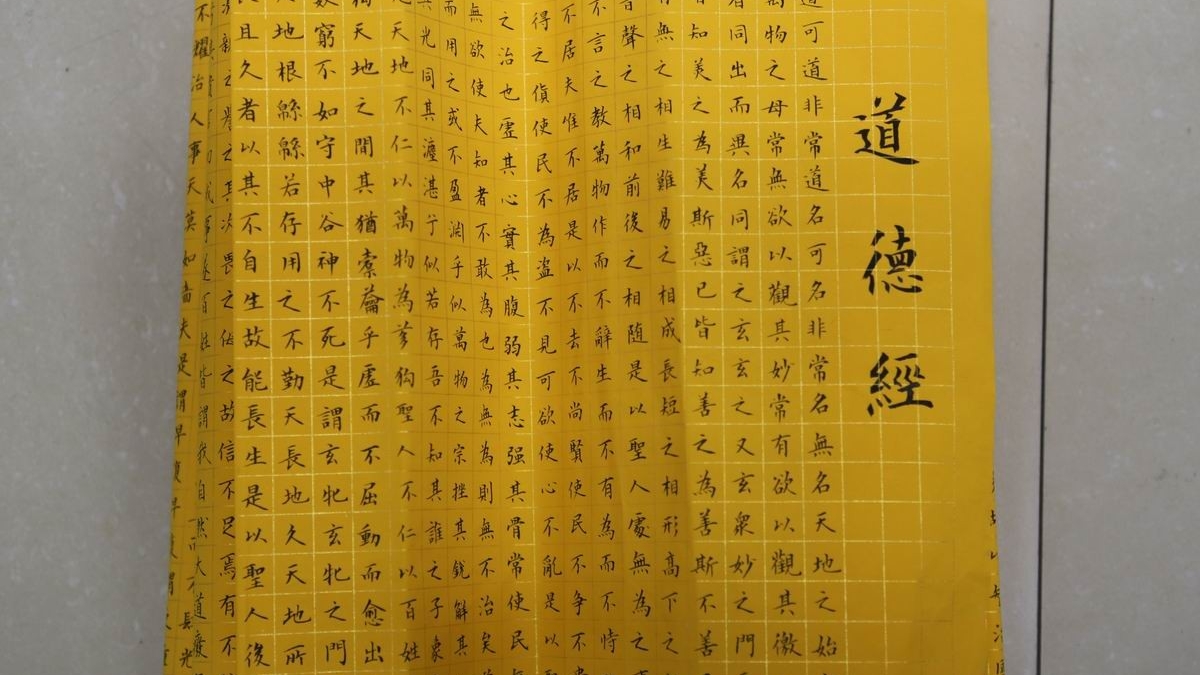 道德經
道可道非常道名可名非常名無名天地之始
萬物之母常無欲以觀其妙常有欲以觀其徼
者同出而異名同謂之玄玄之又玄衆妙之門
皆知美之為美斯惡已皆知善之為善斯不善
有無之相生難易之相成長短之相形高下之
音聲之相和前後之相随是以聖人處無為之
不言之教萬物作而不辭生而不有為而不恃
不居夫惟不居是以不去不尚賢使民不争不
得之貨使民不為盗不見可欲使心不亂是以
之治也虛其心實其腹弱其志强其骨常使民
無欲使夫知者不敢為也為無為則無不治矣
而用之或不盈淵乎似萬物之宗挫其銳解其
光同其塵湛兮似若存吾不知其誰之子象
天地不仁以萬物為芻狗聖人不仁以百姓
天地之間其猶橐籥乎虛而不屈動而愈出
數窮不如守中谷神不死是謂玄牝玄牝之門
天地根緜緜若存用之不勤天長地久天地所
且久者以其不自生故能長生是以聖人後
親之譽之其次畏之侮之故信不足焉有不
成事遂百姓皆謂我自然大道廢
不耀治人事天莫如嗇夫是謂早復早復謂